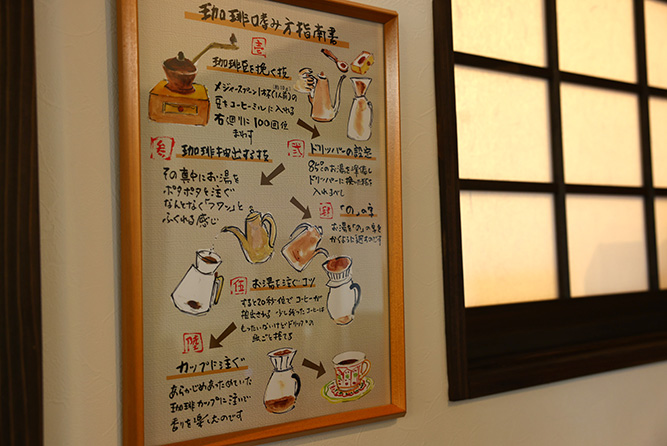 珈琲嗜み方指南書
壱
珈琲豆を挽く技
メジャースプーン1杯(1人前)の
豆をコーヒーミルに入れる
右廻りに100回位
まわす
弐
ドリッパーの設定
85℃のお湯を準備し
ドリッパーに挽いた豆を
入れるべし
参
珈琲抽出する技
その真中にお湯を
ポタポタと注ぐ
なんとなく「フワン」と
ふくれる感じ
肆
「の」の字
お湯を「の」の字を
かくように廻すのです
伍
お湯を注ぐコツ
すると20秒位でコーヒーが
抽出される 少し残ったコーヒーは
もったいないけどドリップの
紙ごと捨てる
陸
カップに注ぐ
あらかじめあったためていた
珈琲カップに注いで
香りを楽しむのです